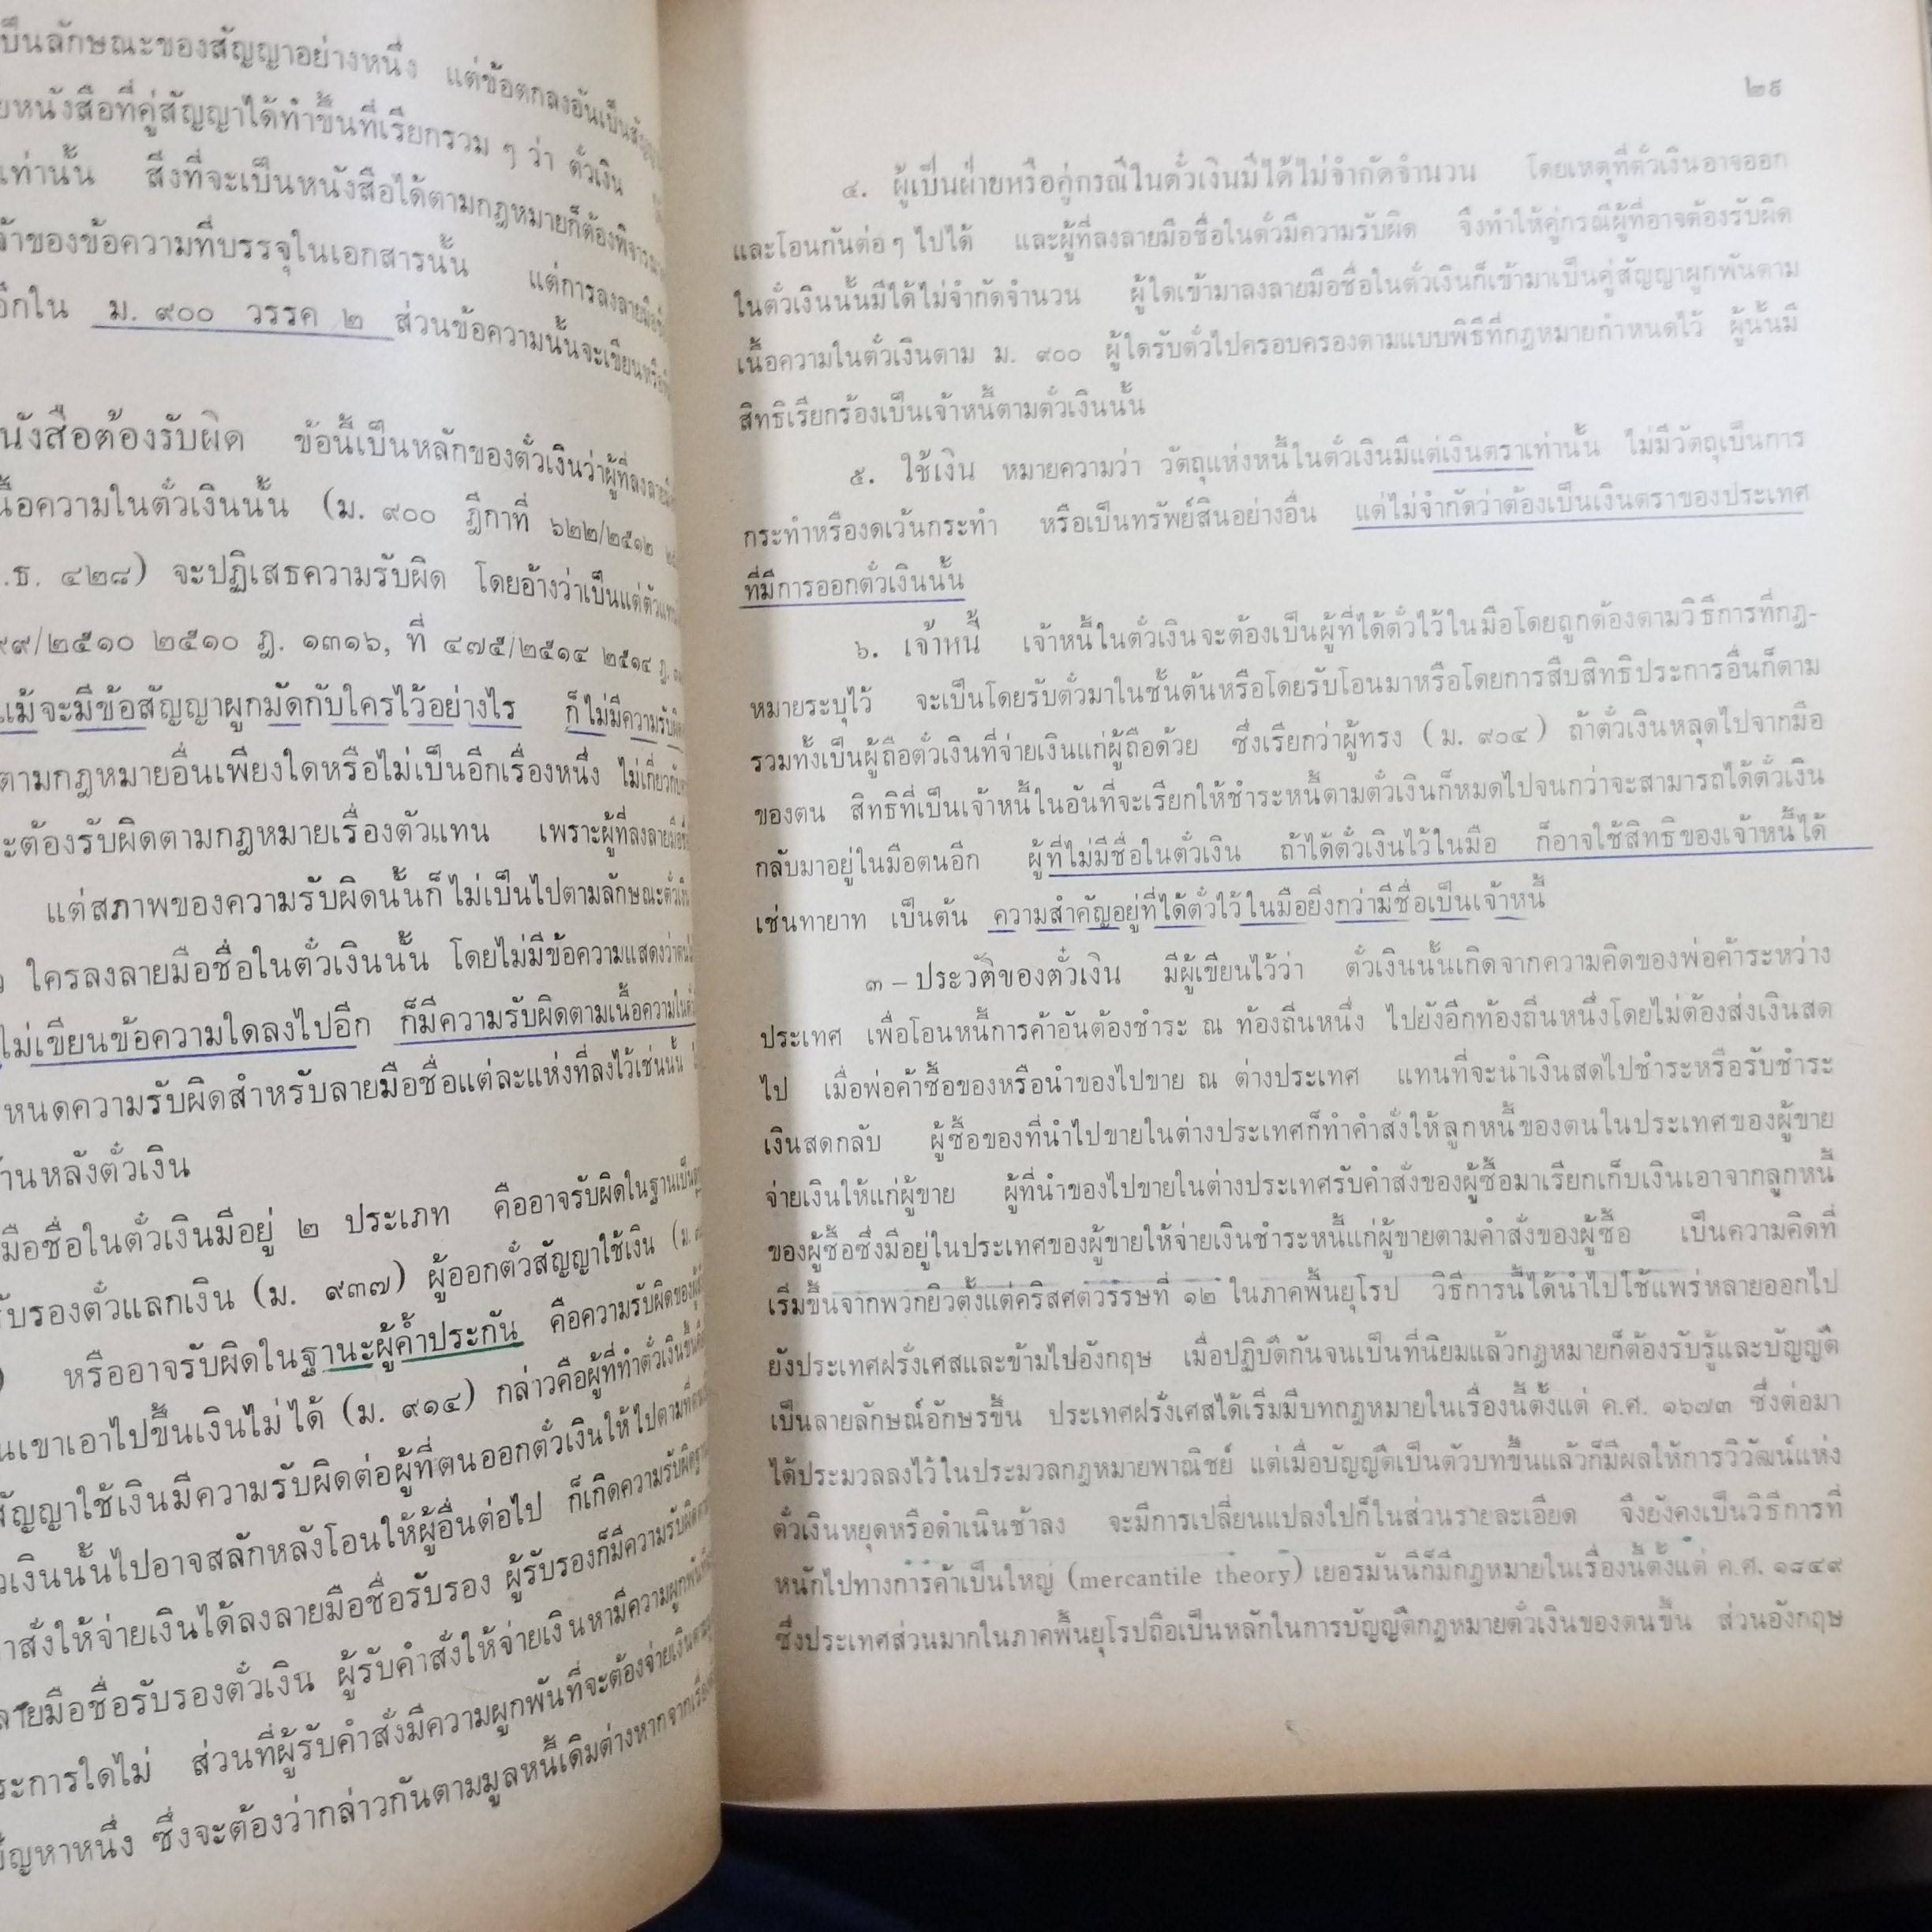 เป็นลักษณะของสัญญาอย่างหนึ่ง แต่ข้อตกลงอันเป็น
หนังสือที่คู่สัญญาได้ทำขึ้นที่เรียกรวม ๆ ว่า ตั๋วเงิน
เท่านั้น สิ่งที่จะเป็นหนังสือได้ตามกฎหมายก็ต้อง
ของข้อความที่บรรจุในเอกสารนั้น แต่การลงลายมือชื่อ
อีกใน ม. ๙๐๐ วรรค ๒ ส่วนข้อความนั้นจะเขียนหรือ
หนังสือต้องรับผิด ข้อนี้เป็นหลักของตั๋วเงินว่าผู้ที่ลงลาย
เนื้อความในตั๋วเงินนั้น (ม. ๙๐๐ ฎีกาที่ ๖๒๒/๒๕๑๒
๔๒๘) จะปฏิเสธความรับผิด โดยอ้างว่าเป็นแต่ตัวแทน
๙๙/๒๕๑๐ ๒๕๑๐ ฎ. ๑๓๑๖, ที่ ๔๗๕/๒๕๑๔ ๒๕๑๔ ฎ.
แม้จะมีข้อสัญญาผูกมัดกับใครไว้อย่างไร ก็ไม่มีความรับผิด
ตามกฎหมายอื่นเพียงใดหรือไม่เป็นอีกเรื่องหนึ่ง ไม่เกี่ยวกับ
จะต้องรับผิดตามกฎหมายเรื่องตัวแทน เพราะผู้ที่ลงลายมือชื่อ
แต่สภาพของความรับผิดนั้นก็ไม่เป็นไปตามลักษณะตั๋วเงิน
ใครลงลายมือชื่อในตั๋วเงินนั้น โดยไม่มีข้อความแสดงว่า
ไม่เขียนข้อความใดลงไปอีก ก็มีความรับผิดตามเนื้อความใน
กำหนดความรับผิดสำหรับลายมือชื่อแต่ละแห่งที่ลงไว้เช่นนั้น
ด้านหลังตั๋วเงิน
มือชื่อในตั๋วเงินมีอยู่ ๒ ประเภท คืออาจรับผิดในฐานเป็น
รับรองตั๋วแลกเงิน (ม. ๙๓๗) ผู้ออกตั๋วสัญญาใช้เงิน (ม.
หรืออาจรับผิดในฐานะผู้ค้ำประกัน คือความรับผิดของผู้
เขาเอาไปขึ้นเงินไม่ได้ (ม. ๙๑๔) กล่าวคือผู้ที่ทำตั๋วเงินขึ้น
สัญญาใช้เงินมีความรับผิดต่อผู้ที่ตนออกตั๋วเงินให้ไปตามที่
ตั๋วเงินนั้นไปอาจสลักหลังโอนให้ผู้อื่นต่อไป ก็เกิดความรับผิด
คำสั่งให้จ่ายเงินได้ลงลายมือชื่อรับรอง ผู้รับรองก็มีความรับผิด
ลายมือชื่อรับรองตั๋วเงิน ผู้รับคำสั่งให้จ่ายเงินหามีความผูกพัน
ประการใดไม่ ส่วนที่ผู้รับคำสั่งมีความผูกพันที่จะต้องจ่ายเงิน
ปัญหาหนึ่ง ซึ่งจะต้องว่ากล่าวกันตามมูลหนี้เดิมต่างหากจาก
๒๙
๔. ผู้เป็นฝ่ายหรือคู่กรณีในตั๋วเงินมีได้ไม่จำกัดจำนวน โดยเหตุที่ตั๋วเงินอาจออก
และโอนกันต่อ ๆ ไปได้ และผู้ที่ลงลายมือชื่อในตั๋วมีความรับผิด จึงทำให้คู่กรณีผู้ที่อาจต้องรับผิด
ในตั๋วเงินนั้นมีได้ไม่จำกัดจำนวน ผู้ใดเข้ามาลงลายมือชื่อในตั๋วเงินก็เข้ามาเป็นคู่สัญญาผูกพันตาม
เนื้อความในตั๋วเงินตาม ม. ๙๐๐ ผู้ใดรับตั๋วไปครอบครองตามแบบพิธีที่กฎหมายกำหนดไว้ ผู้นั้นมี
สิทธิเรียกร้องเป็นเจ้าหนี้ตามตั๋วเงินนั้น
๕. ใช้เงิน หมายความว่า วัตถุแห่งหนี้ในตั๋วเงินมีแต่เงินตราเท่านั้น ไม่มีวัตถุเป็นการ
กระทำหรืองดเว้นกระทำ หรือเป็นทรัพย์สินอย่างอื่น แต่ไม่จำกัดว่าต้องเป็นเงินตราของประเทศ
ที่มีการออกตั๋วเงินนั้น
๖. เจ้าหนี้ เจ้าหนี้ในตั๋วเงินจะต้องเป็นผู้ที่ได้ตั๋วไว้ในมือโดยถูกต้องตามวิธีการที่กฎ-
หมายระบุไว้ จะเป็นโดยรับตั๋วมาในชั้นต้นหรือโดยรับโอนมาหรือโดยการสืบสิทธิประการอื่นก็ตาม
รวมทั้งเป็นผู้ถือตั๋วเงินที่จ่ายเงินแก่ผู้ถือด้วย ซึ่งเรียกว่าผู้ทรง (ม. ๙๐๔) ถ้าตั๋วเงินหลุดไปจากมือ
ของตน สิทธิที่เป็นเจ้าหนี้ในอันที่จะเรียกให้ชำระหนี้ตามตั๋วเงินก็หมดไปจนกว่าจะสามารถได้ตั๋วเงิน
กลับมาอยู่ในมือตนอีก ผู้ที่ไม่มีชื่อในตั๋วเงิน ถ้าได้ตั๋วเงินไว้ในมือ ก็อาจใช้สิทธิของเจ้าหนี้ได้
เช่นทายาท เป็นต้น ความสำคัญอยู่ที่ได้ตั๋วไว้ในมือยิ่งกว่ามีชื่อเป็นเจ้าหนี้
๓ – ประวัติของตั๋วเงิน มีผู้เขียนไว้ว่า ตั๋วเงินนั้นเกิดจากความคิดของพ่อค้าระหว่าง
ประเทศ เพื่อโอนหนี้การค้าอันต้องชำระ ณ ท้องถิ่นหนึ่ง ไปยังอีกท้องถิ่นหนึ่งโดยไม่ต้องส่งเงินสด
ไป เมื่อพ่อค้าซื้อของหรือนำของไปขาย ณ ต่างประเทศ แทนที่จะนำเงินสดไปชำระหรือรับชำระ
เงินสดกลับ ผู้ซื้อของที่นำไปขายในต่างประเทศก็ทำคำสั่งให้ลูกหนี้ของตนในประเทศของผู้ขาย
จ่ายเงินให้แก่ผู้ขาย ผู้ที่นำของไปขายในต่างประเทศรับคำสั่งของผู้ซื้อมาเรียกเก็บเงินเอาจากลูกหนี้
ของผู้ซื้อซึ่งมีอยู่ในประเทศของผู้ขายให้จ่ายเงินชำระหนี้แก่ผู้ขายตามคำสั่งของผู้ซื้อ เป็นความคิดที่
เริ่มขึ้นจากพวกยิวตั้งแต่คริสศตวรรษที่ ๑๒ ในภาคพื้นยุโรป วิธีการนี้ได้นำไปใช้แพร่หลายออกไป
ยังประเทศฝรั่งเศสและข้ามไปอังกฤษ เมื่อปฏิบัติกันจนเป็นที่นิยมแล้วกฎหมายก็ต้องรับรู้และบัญญัติ
เป็นลายลักษณ์อักษรขึ้น ประเทศฝรั่งเศสได้เริ่มมีบทกฎหมายในเรื่องนี้ตั้งแต่ ค.ศ. ๑๖๗๓ ซึ่งต่อมา
ได้ประมวลลงไว้ในประมวลกฎหมายพาณิชย์ แต่เมื่อบัญญัติเป็นตัวบทขึ้นแล้วก็มีผลให้การวิวัฒน์แห่ง
ตั๋วเงินหยุดหรือดำเนินช้าลง จะมีการเปลี่ยนแปลงไปก็ในส่วนรายละเอียด จึงยังคงเป็นวิธีการที่
หนักไปทางการค้าเป็นใหญ่ (mercantile theory) เยอรมันนีก็มีกฎหมายในเรื่องนี้ตั้งแต่ ค.ศ. ๑๘๔๙
ซึ่งประเทศส่วนมากในภาคพื้นยุโรปถือเป็นหลักในการบัญญัติกฎหมายตั๋วเงินของตนขึ้น ส่วนอังกฤษ